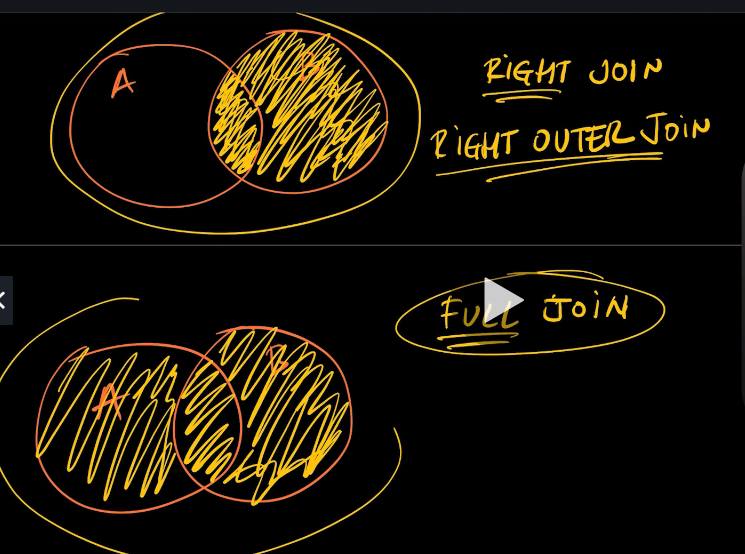 A
B
RIGHT JOIN
RIGHT OUTER JOIN
FULL JOIN
A
B